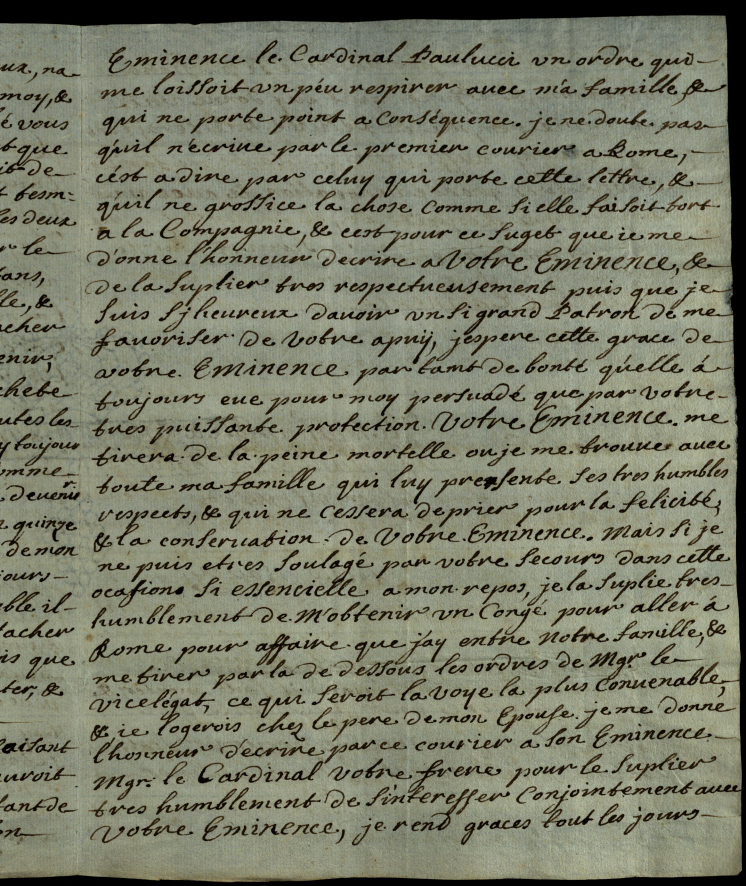 ux, na
moy, &
é vous
t que
it de
t tesm:
les deux
r le
tans,
lle, &
acher
enir,
chete
utes les
y toujour
omme
a devenir
n quinze
de mon
jours
ble il
tacher
is que
ter, &
laisant
auroit
tant de
on
Eminence le Cardinal Paulucci un ordre qui
me loissoit un péu respirer avec m'a famille, &
qui ne porte point a Conséquence. je ne doute pas
qu'il n'ecrive par le premier courier a Rome,
c'ést a dire par celuy qui porte cette lettre, &
qu'il ne grossice la chose comme si elle faisoit tort
a la Compagnie, & cest pour ce suget que ie me
d'onne l'honneur decrire a Votre Eminence, &
de la suplier tres respectueusement puis que je
suis sj heureux d'avoir un si grand Patron de me
favoriser de votre apuÿ, j'espere cette grace de
votre Eminence par tamt de bonté qu'elle á
toujours eue pour moy persuadé que par votre
tres puissante protection Votre Eminence me
tirera de la peine mortelle ou je me trouve avec
toute ma famille qui luy presente ses tres humbles
respects, & qui ne cessera de prier pour la felicité,
& la conservation de Votre Eminence. Mais si je
ne puis etres soulagé par votre secours dans cette
ocasions si essencielle a mon repos, je la suplie tres
humblement de M'obtenir un Congé pour aller á
Rome pour affaire que j'ay entre notre famille, &
me tirer par la de dessous les ordres de Mgr. le
vicelégat, ce qui seroit la voye la plus convenable,
& ie logerois chez le pere de mon Epouse. je me donne
l'honneur d'ecrire par ce courier a Son Eminence
Mgr. le Cardinal votre frere pour le suplier
tres humblement de s'interesser Conjointement avec
Votre Eminence, je rend graces tout les jours